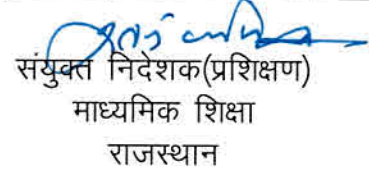 संयुक्त निदेशक(प्रशिक्षण)
माध्यमिक शिक्षा
राजस्थान